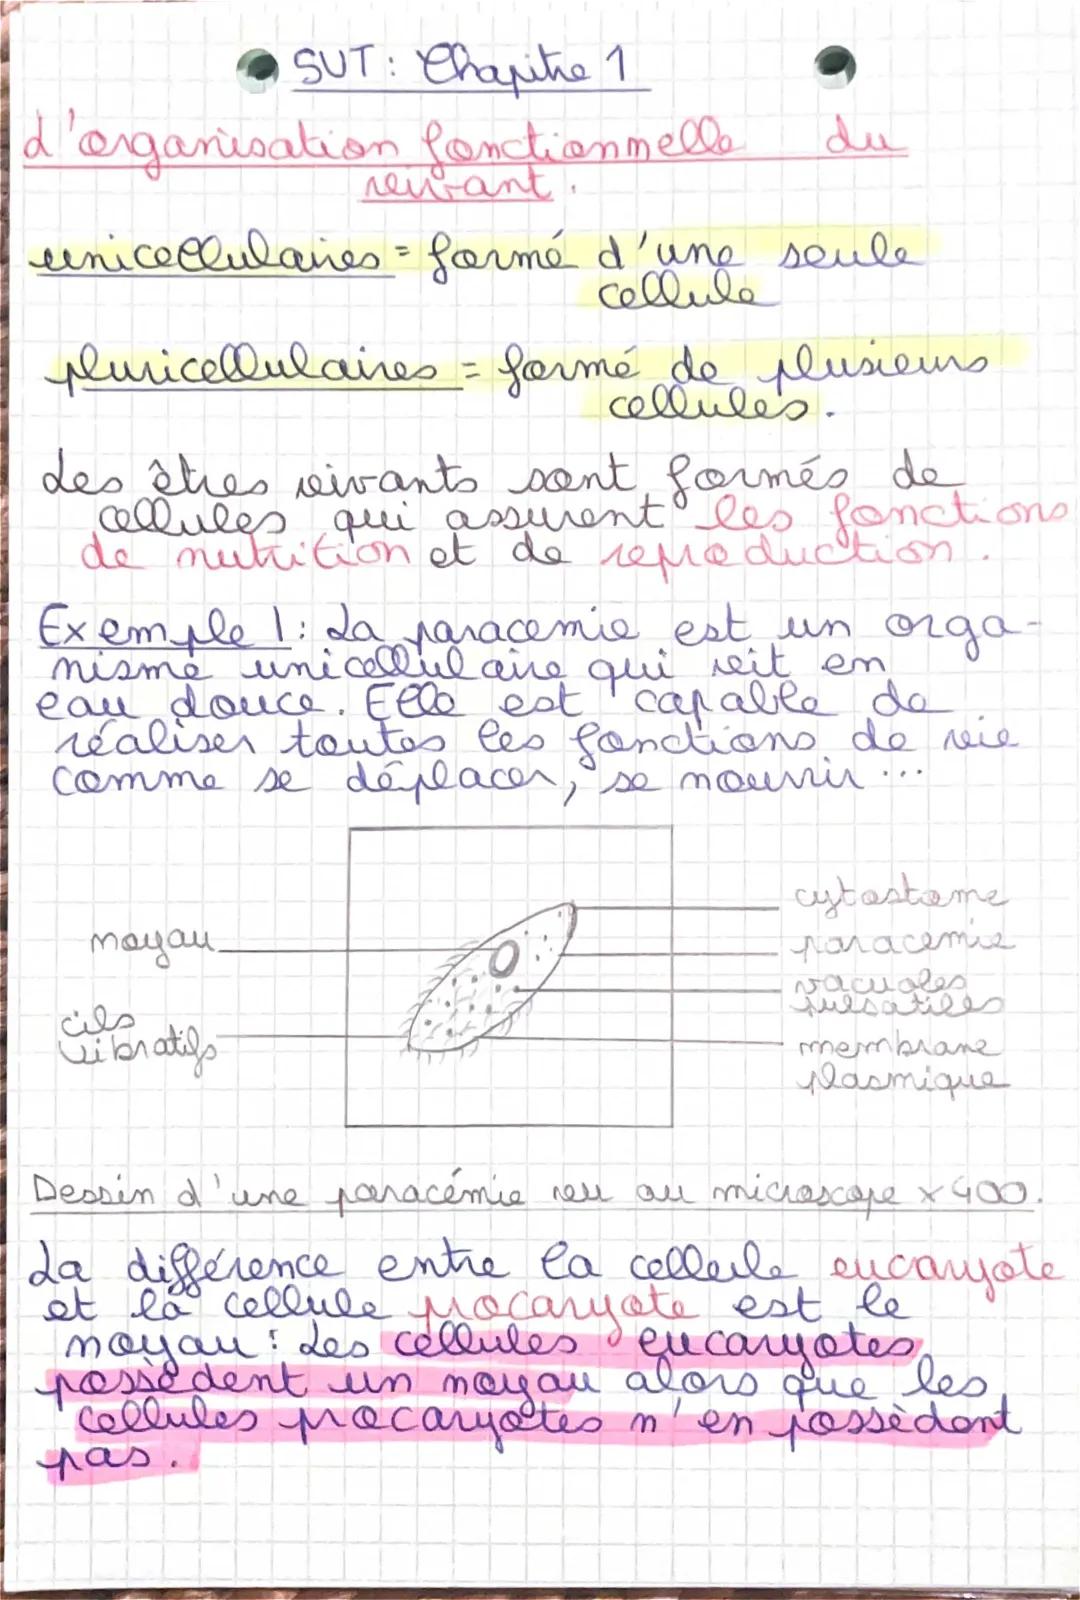 SVT : Chapitre 1
L'organisation fonctionnelle du
vivant.
unicellulaires = formé d'une seule
cellule
pluricellulaires = formé de plusieurs
cellules.
Les êtres vivants sont formés de
cellules qui assurent les fonctions
de nutrition et de reproduction.
Exemple 1 : La paracemie est un orga-
nisme unicellulaire qui vit en
eau douce. Elle est capable de
réaliser toutes les fonctions de vie
comme se déplacer, se nourrir ...
cytostome
noyau
paracemie
vacuoles
pulsatiles
cils
vibratifs
membrane
plasmique
Dessin d'une paracémie vu au microscope x400.
La différence entre la cellule eucaryote
et la cellule procaryote est le
noyau : Les cellules eucaryotes
possèdent un noyau alors que les
cellules procaryotes n'en possèdent
pas.